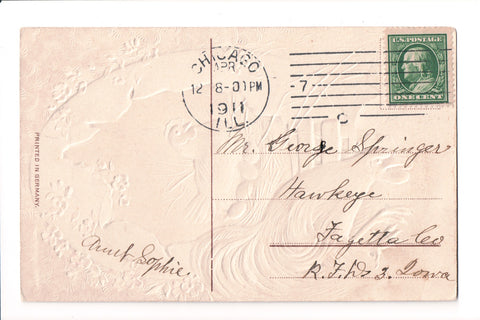 CHICAGO
APR
12 8-01PM
1911
ILL.
-7
C
U.S. POSTAGE
ONE CENT
PRINTED IN GERMANY.
Mr. George Springer
Hawkeye
Fayetta Co
R.F.D. 3. Iowa
Aunt Sophie.